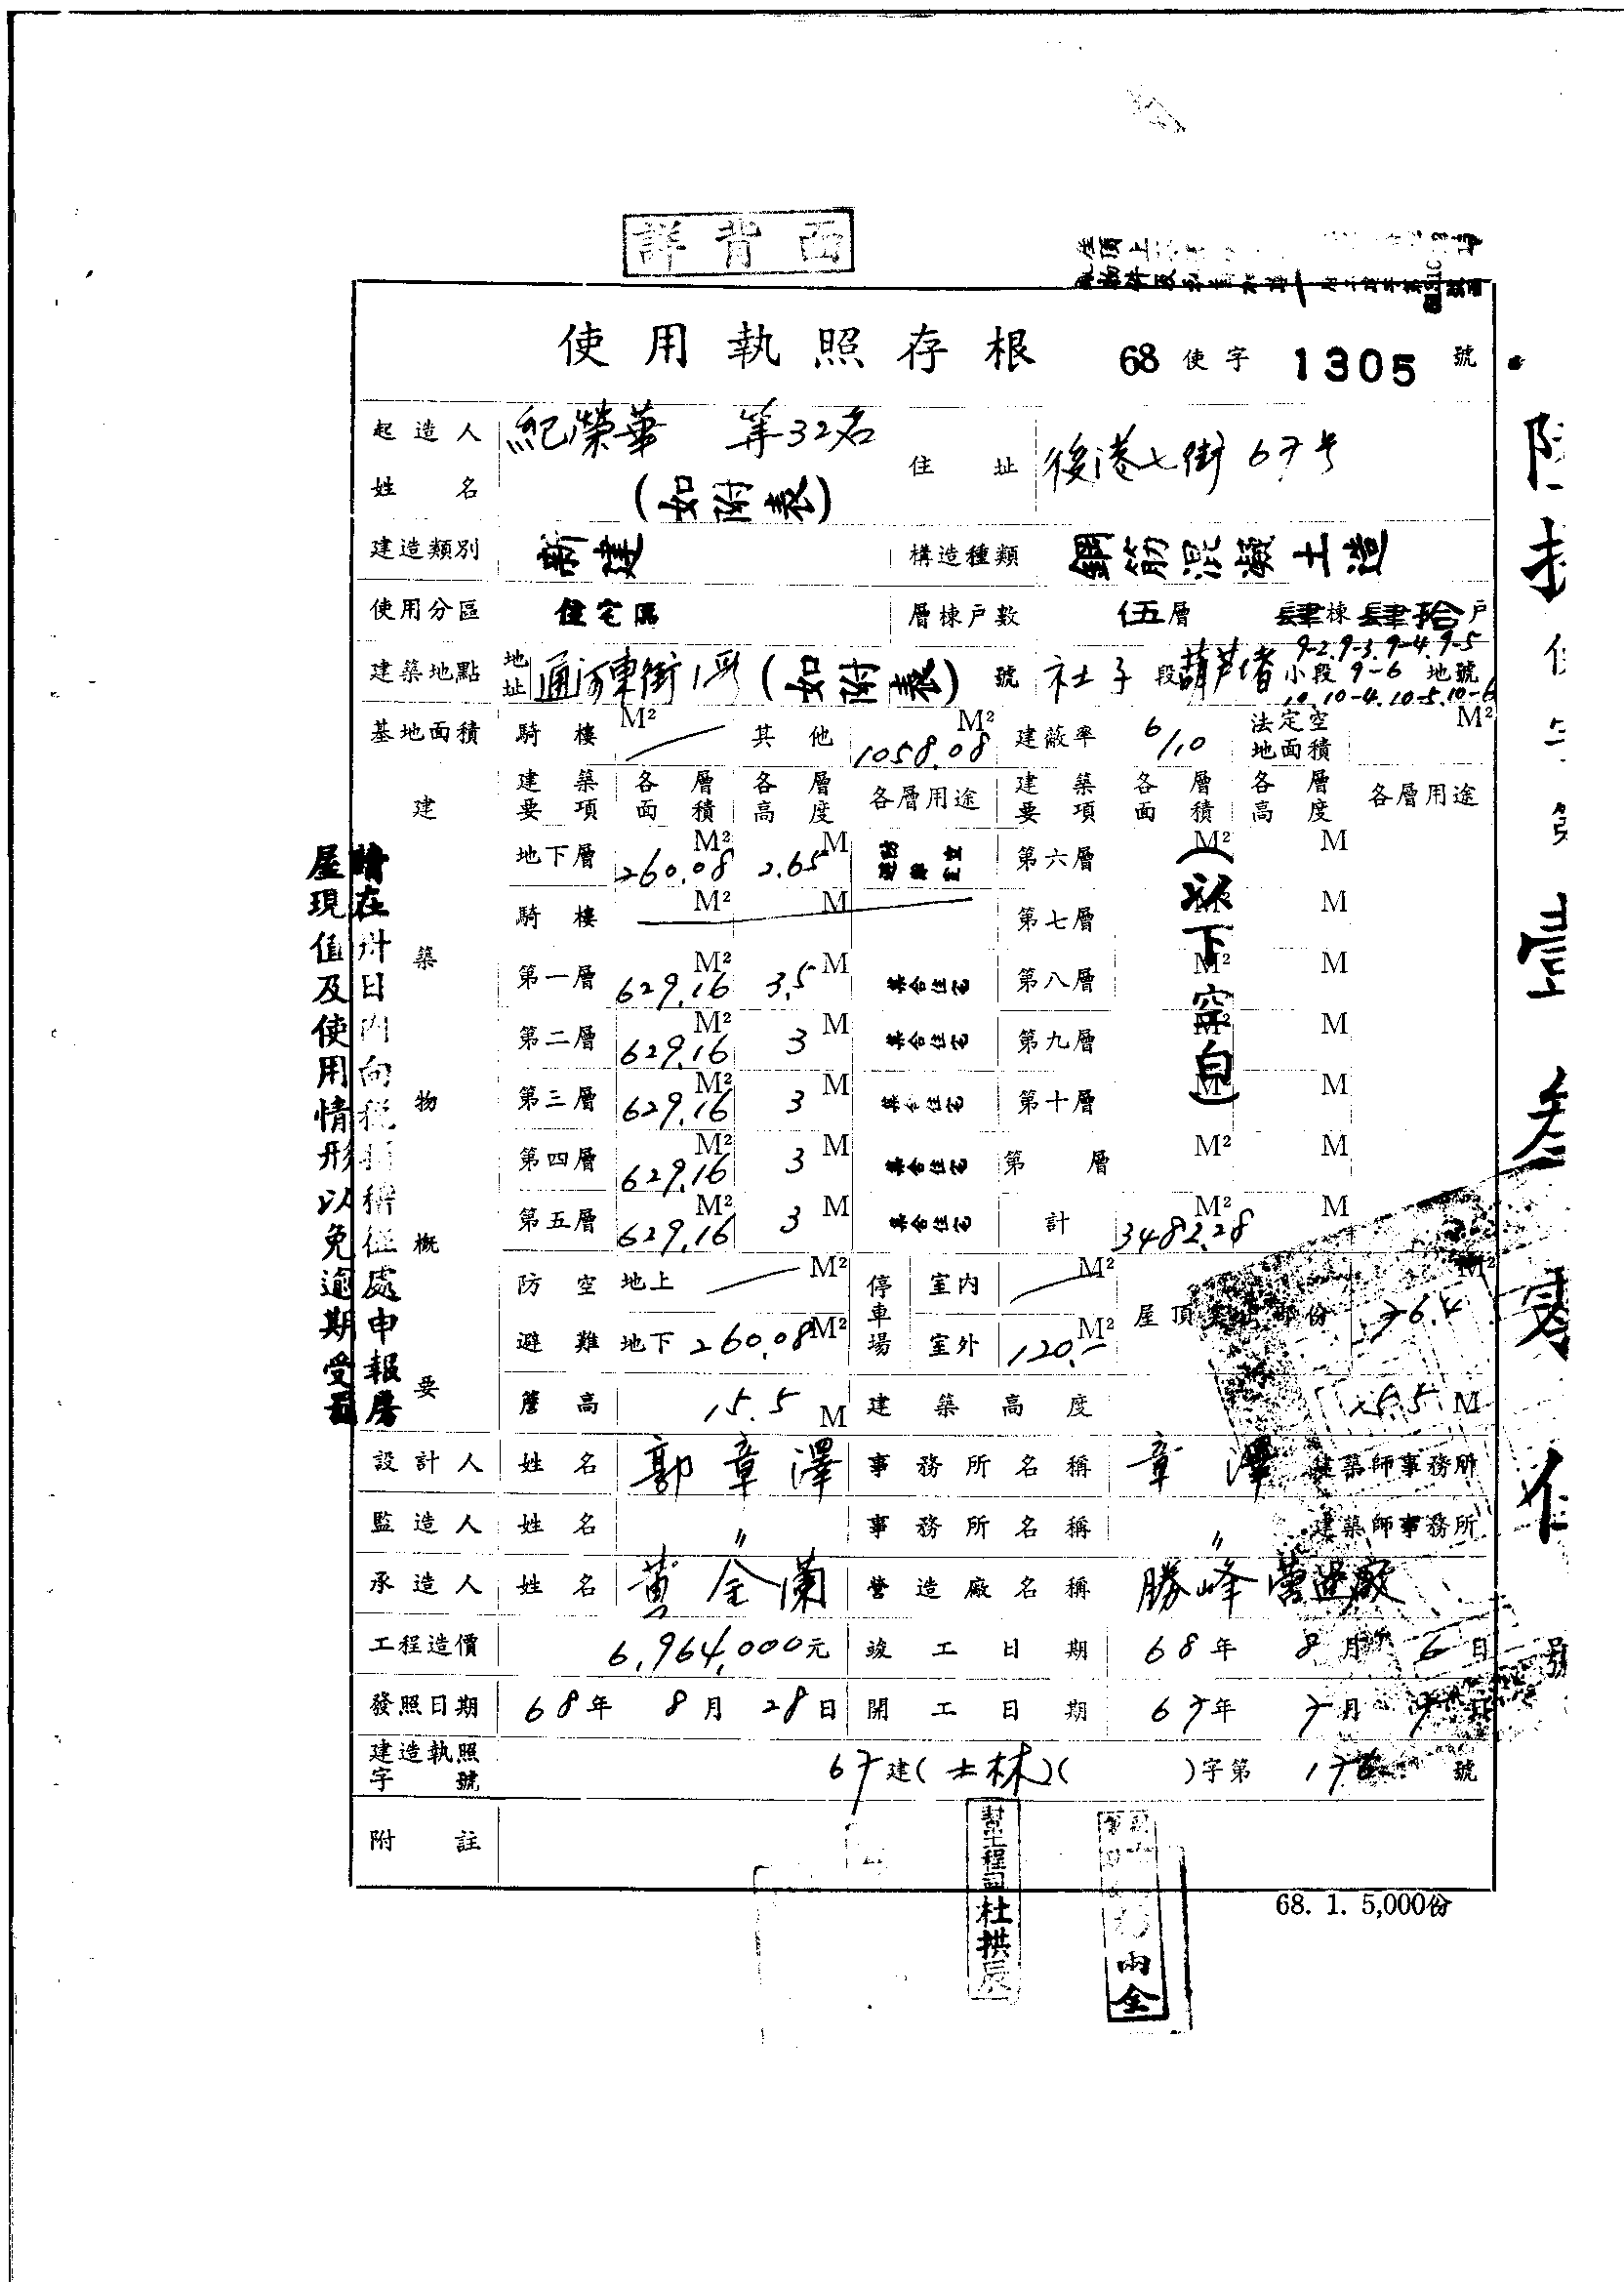 詳背面
使用執照存根 68使字1305號
起造人姓名 紀榮華 等32名 (如附表) 住址 後港七街67号
建造類別 新建 構造種類 鋼筋混凝土造
使用分區 住宅區 層棟戶數 伍層 肆棟肆拾戶
9-2.9-3.9-4.9-5
建築地點 地址 通河東街1段(如附表)號 社子段葫芦堵小段 9-6 地號
10.10-4.10-5.10-6
基地面積 騎樓 M² 其他 1058.08 M² 建蔽率 6/10 法定空地面積 M²
建築物概要
建築要項 各層面積 各層高度 各層用途 建築要項 各層面積 各層高度 各層用途
地下層 260.08 M² 2.65 M 第六層 M² M
騎樓 M² M 第七層 M² M
第一層 629.16 M² 3.5 M 集合住宅 第八層 M² M
第二層 629.16 M² 3 M 集合住宅 第九層 M² M
第三層 629.16 M² 3 M 集合住宅 第十層 M² M
第四層 629.16 M² 3 M 集合住宅 第 層 M² M
第五層 629.16 M² 3 M 集合住宅 計 3482.28 M² M
(以下空白)
防空避難 地上 M² 停車場 室內 M² 屋頂突出部份 76.4 M²
地下 260.08 M² 室外 120.- M²
簷高 15.5 M 建築高度 15.5 M
設計人 姓名 郭章澤 事務所名稱 章澤 建築師事務所
監造人 姓名 〃 事務所名稱 〃 建築師事務所
承造人 姓名 黃金蘭 營造廠名稱 勝峰營造廠
工程造價 6,964,000元 竣工日期 68年8月6日
發照日期 68年8月28日 開工日期 67年7月7日
建造執照字號 67建(士林)( )字第176號
附註
68. 1. 5,000份
請在卅日內向稅捐稽征處申報房
屋現值及使用情形以免逾期受罰
杜拱辰